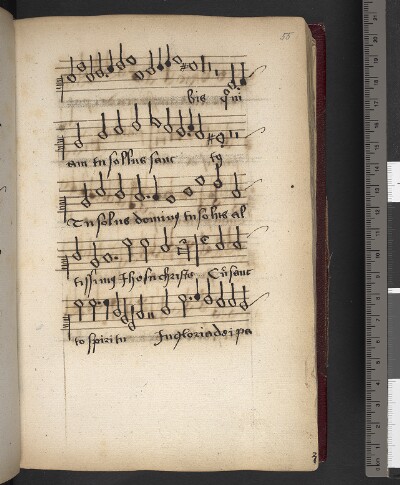 55
bis qni
am tu sollus sanc tq
Tu solus dominq tu solus al
tissimq Jhesu christe Cū sanc
to spiritu In gloria dei pa